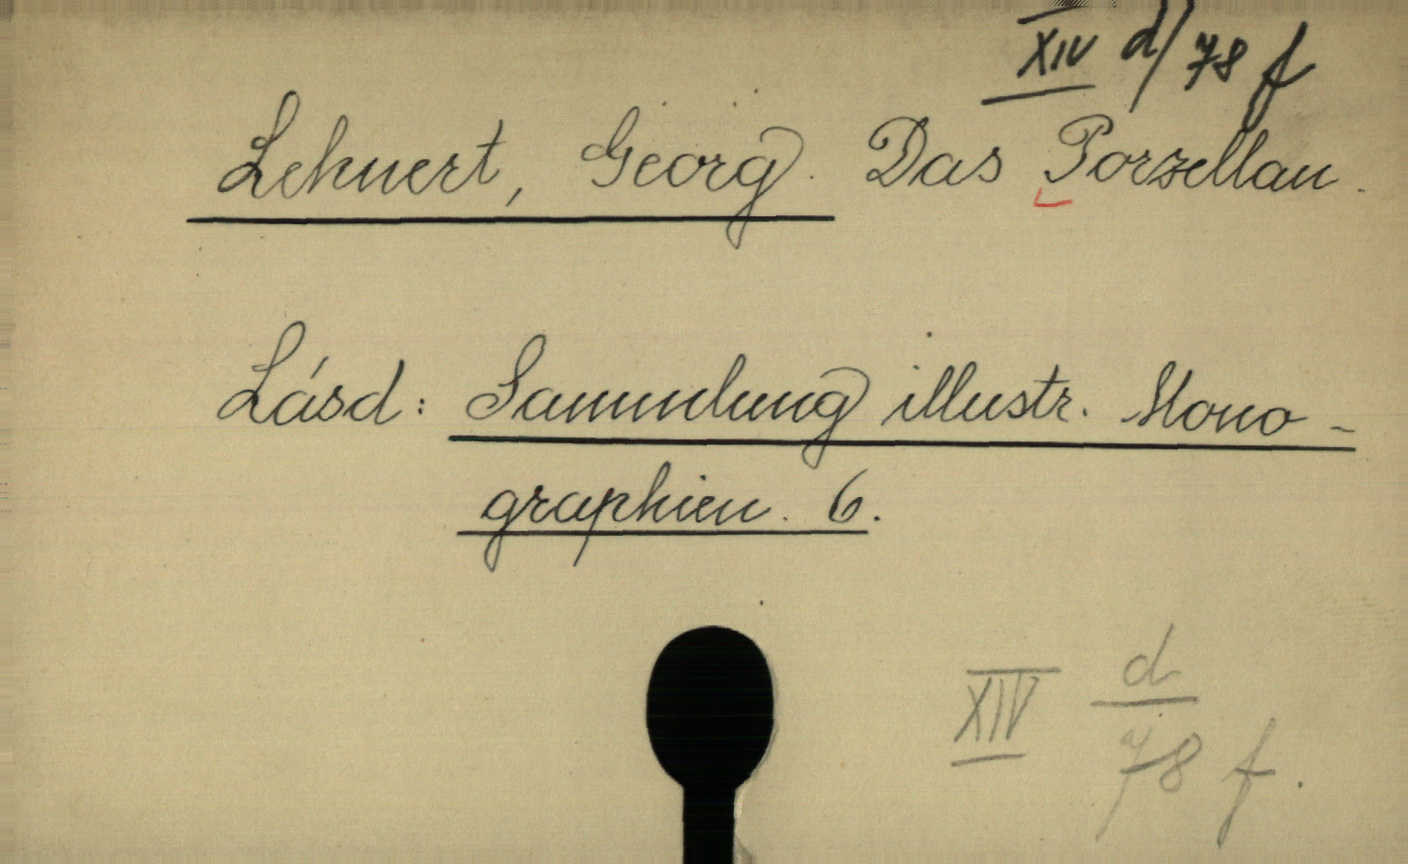 XIV d/78 f
Lehnert, Georg. Das Porzellan.
Lásd: Sammlung illustr. Mono-
graphien. 6.
XIV d
78 f.